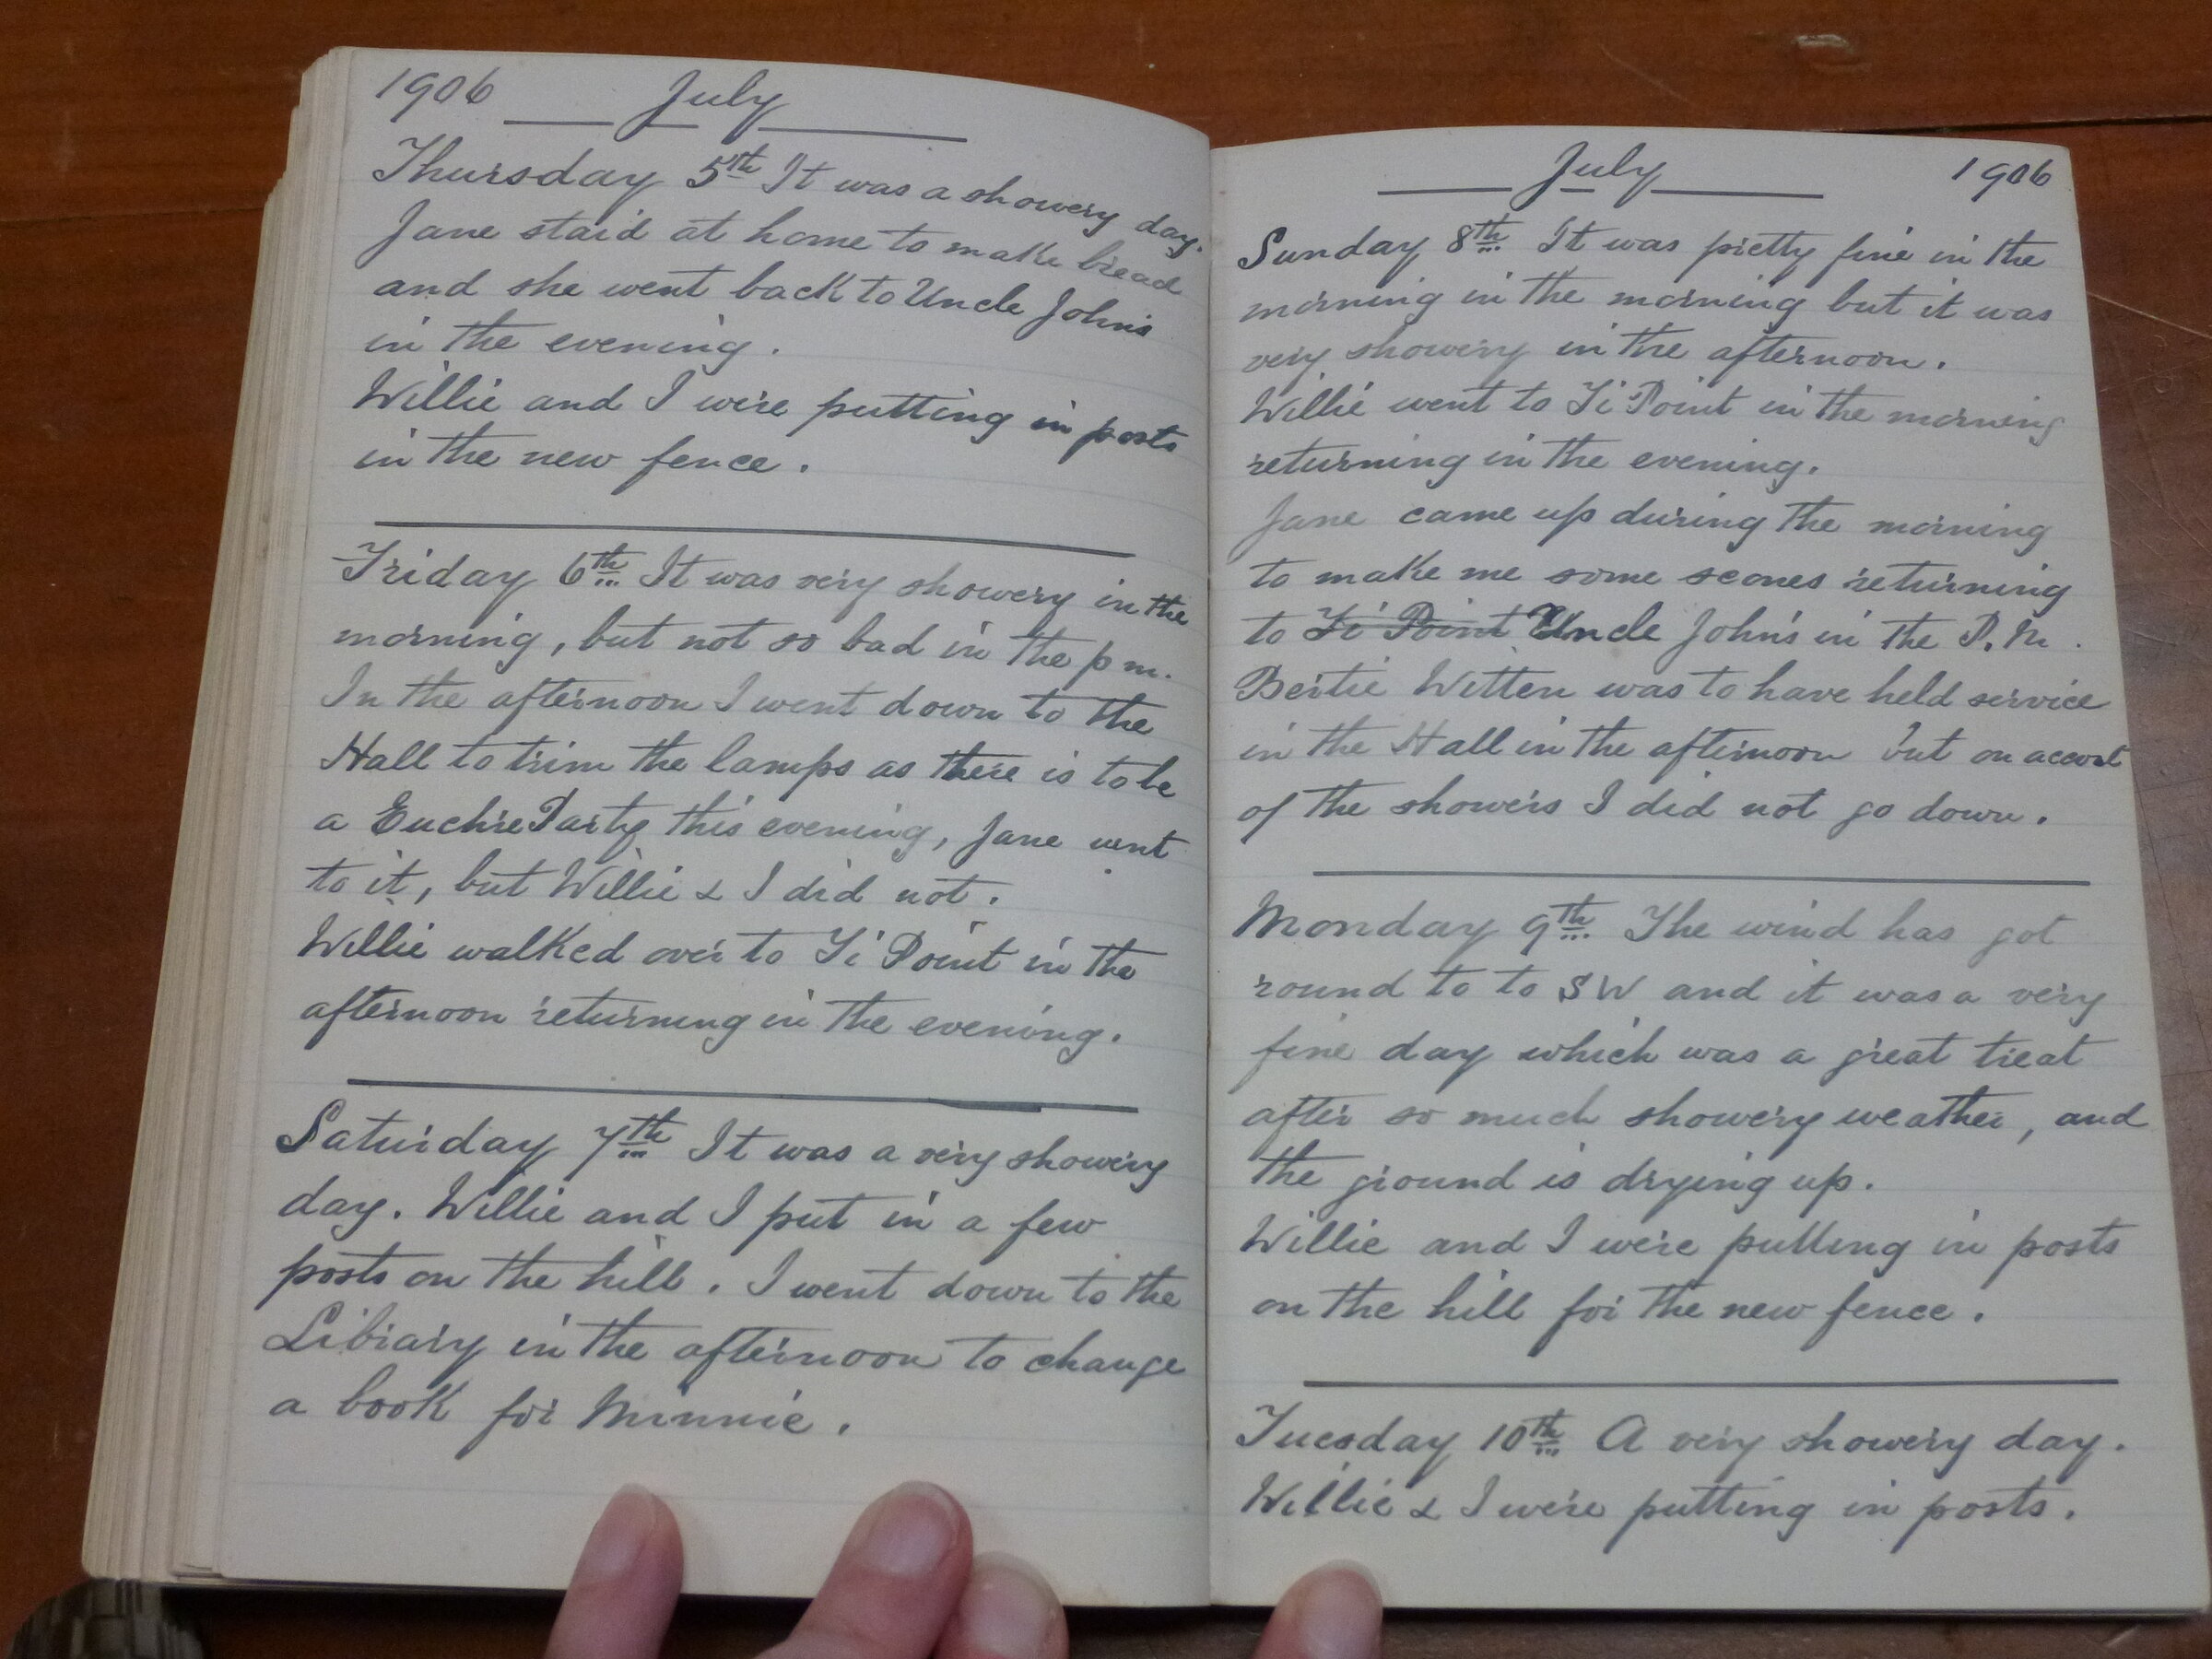 1906 July
Thursday 5th It was a showery day.
Jane staid at home to make bread
and she went back to Uncle John's
in the evening.
Willie and I were putting in posts
in the new fence.
Friday 6th It was very showery in the
morning, but not so bad in the p m.
In the afternoon I went down to the
Hall to trim the lamps as there is to be
a Euchre Party this evening, Jane went
to it, but Willie & I did not.
Willie walked over to Ti Point in the
afternoon returning in the evening.
Saturday 7th It was a very showery
day. Willie and I put in a few
posts on the hill. I went down to the
Library in the afternoon to change
a book for Minnie.
July 1906
Sunday 8th It was pretty fine in the
morning in the morning but it was
very showery in the afternoon.
Willie went to Ti Point in the morning
returning in the evening.
Jane came up during the morning
to make me some scones returning
to Ti Point Uncle John's in the P.M.
Bertie Witten was to have held service
in the Hall in the afternoon but on account
of the showers I did not go down.
Monday 9th The wind has got
round to to SW and it was a very
fine day which was a great treat
after so much showery weather, and
the ground is drying up.
Willie and I were putting in posts
on the hill for the new fence.
Tuesday 10th A very showery day.
Willie & I were putting in posts.